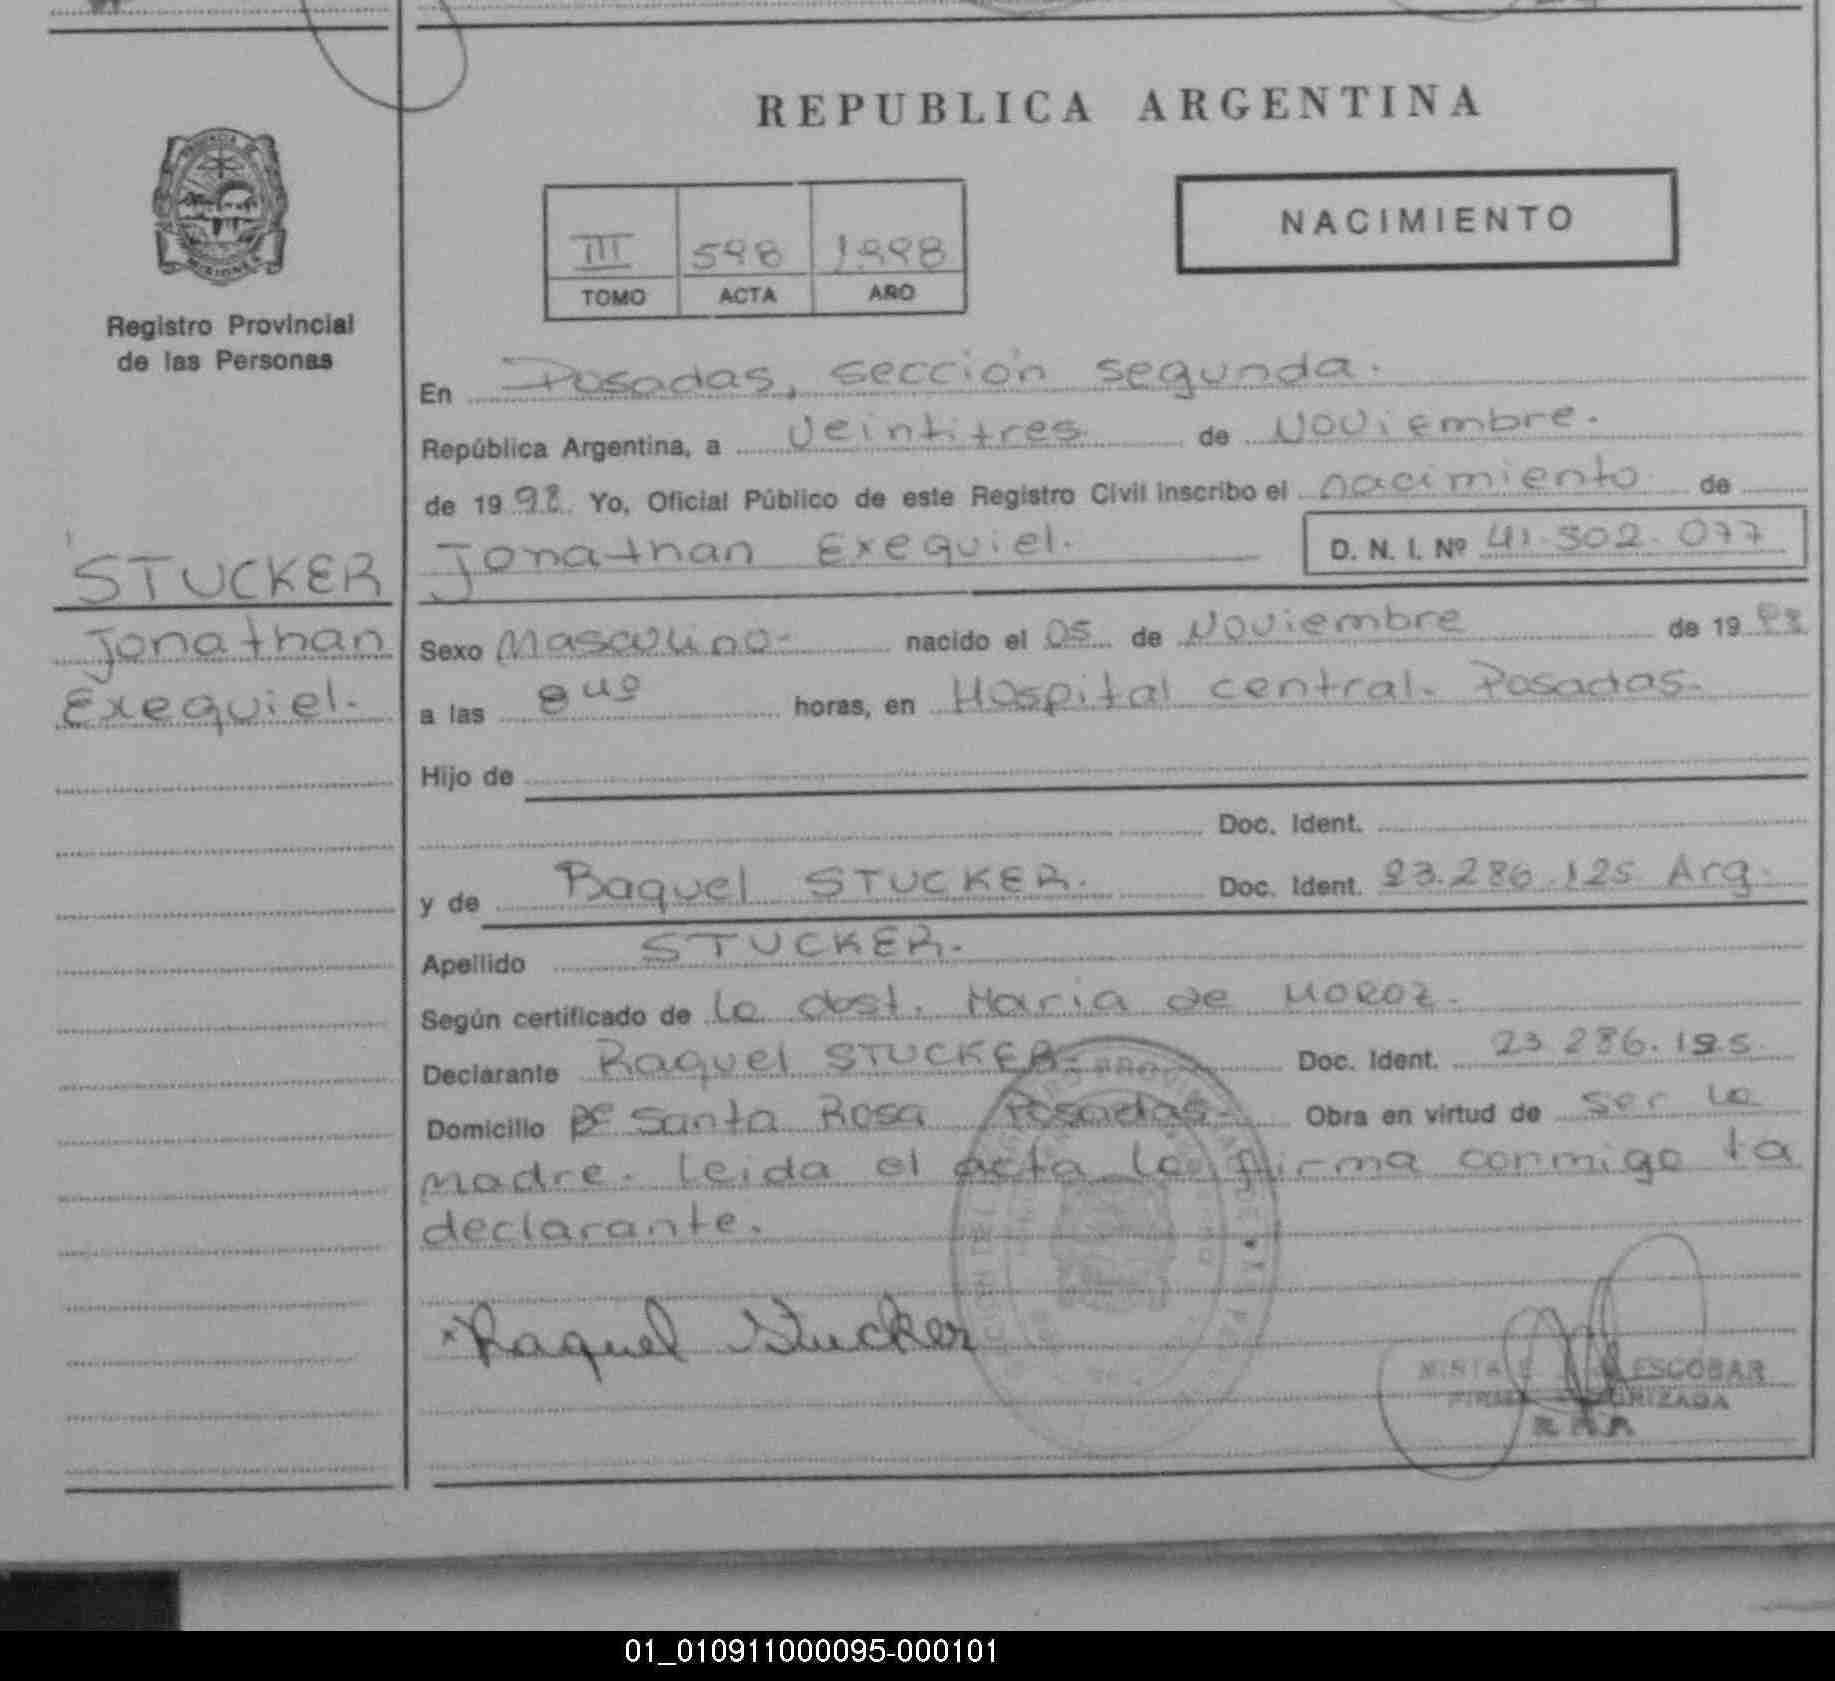 REPUBLICA ARGENTINA
NACIMIENTO
III 598 1998
TOMO ACTA AÑO
MISIONES
Registro Provincial
de las Personas
STUCKER
Jonathan
Exequiel.
En Posadas, sección segunda.
República Argentina, a veintitres de Noviembre.
de 1998. Yo, Oficial Público de este Registro Civil inscribo el nacimiento de
Jonathan Exequiel. D. N. I. Nº 41.302.077
Sexo Masculino- nacido el 05 de Noviembre de 1998
a las 8 40 horas, en Hospital central. Posadas-
Hijo de
Doc. Ident.
y de Raquel STUCKER. Doc. Ident. 23.286.125 Arg.
Apellido STUCKER.
Según certificado de la obst. Maria de MOROZ.
Declarante Raquel STUCKER- Doc. Ident. 23 286.125.
Domicilio Bº Santa Rosa Posadas- Obra en virtud de ser la
madre. leida el acta la firma conmigo la
declarante.
x Raquel Stucker
ESCOBAR
01_010911000095-000101